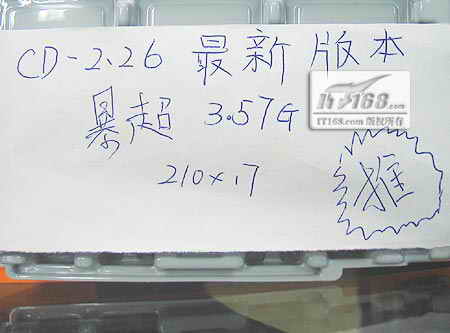 CD-2.26 最新版本
IT168.com
IT168.com 版权所有
暴超 3.57G
210×17
推